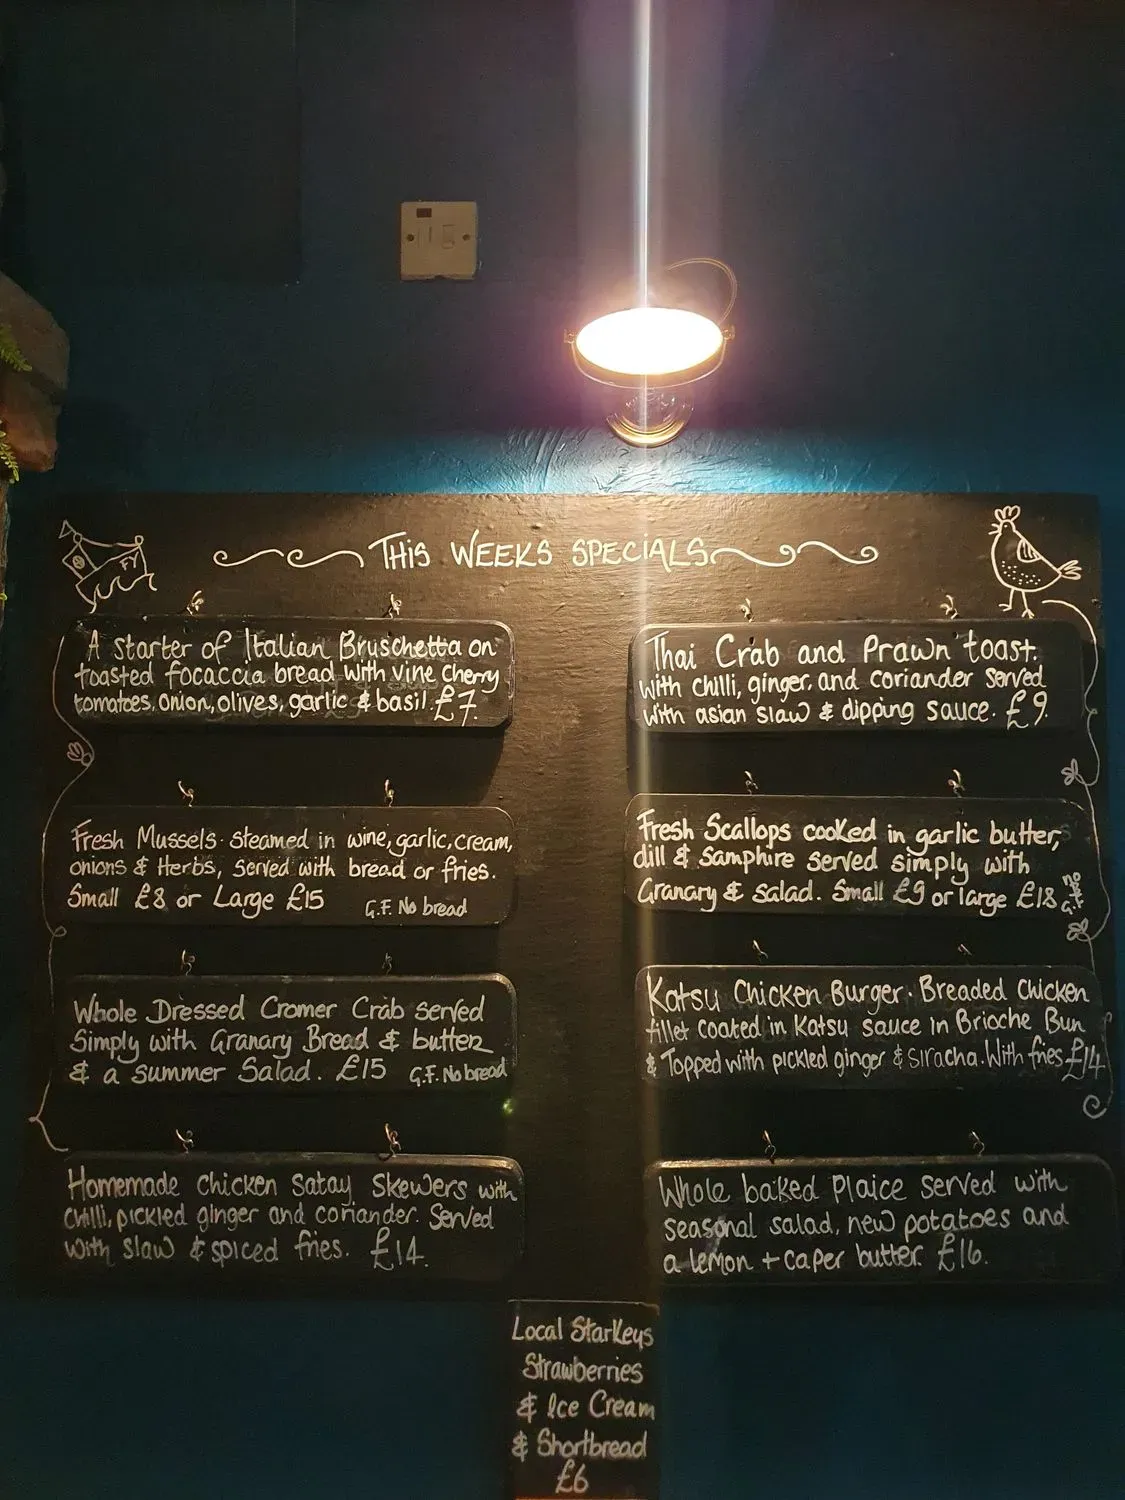 THIS WEEKS SPECIALS
FY
A starter of Italian Bruschetta on
toasted focaccia bread with vine cherry
tomatoes, onion, olives, garlic & basil. £7.
Fresh Mussels. steamed in wine, garlic, cream,
onions & Herbs, served with bread or fries.
Small £8 or Large £15
G.F. No bread
Whole Dressed Cromer Crab served
Simply with Granary Bread & butter
& a Summer Salad. £15
G.F. No bread
Homemade chicken Satay Skewers with
chilli, pickled ginger and coriander. Served
with slaw & spiced fries. £14.
Thai Crab and Prawn toast.
with chilli, ginger, and coriander served
with asian slaw & dipping sauce. £9.
Fresh Scallops cooked in garlic butter,
dill & Samphire served simply with
Granary & salad. Small £9 or large £18
Katsu Chicken Burger. Breaded chicken
fillet coated in Katsu sauce in Brioche Bun
& Topped with pickled ginger & siracha. With fries £14
Whole baked Plaice served with
seasonal salad, new potatoes and
a lemon + caper butter. £16.
Local Starkeys
Strawberries
& Ice Cream
& Shortbread
£6